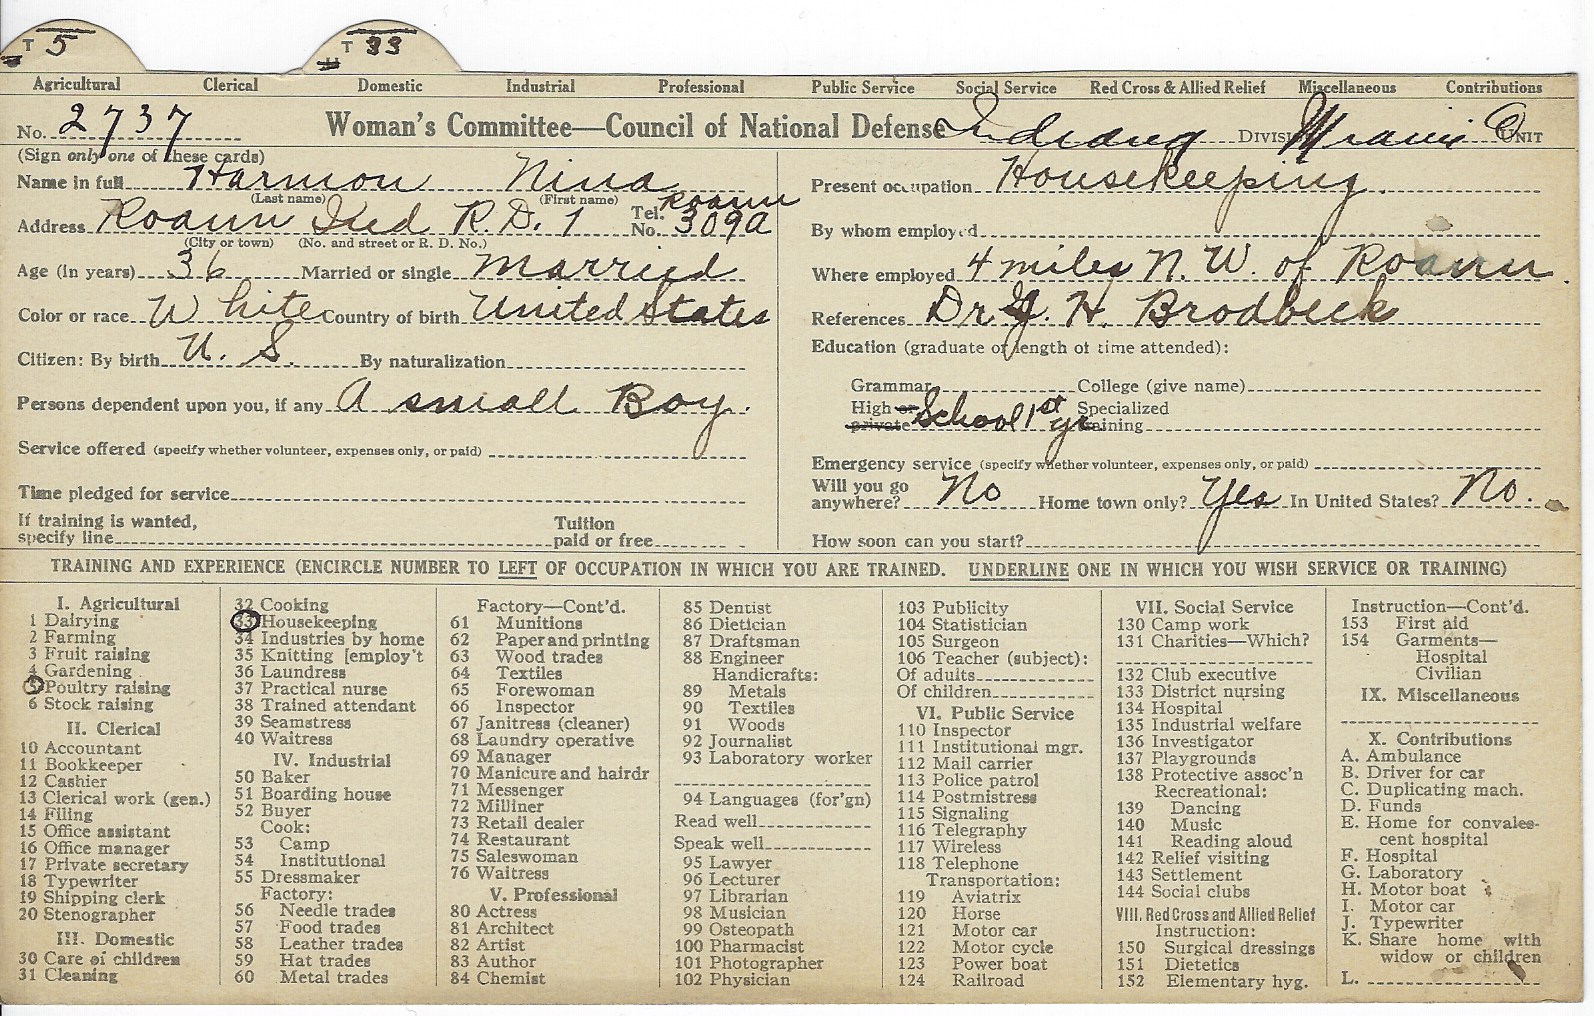 T 5 T 33
Agricultural Clerical Domestic Industrial Professional Public Service Social Service Red Cross & Allied Relief Miscellaneous Contributions
No. 2737 Woman's Committee—Council of National Defense Indiana DIVISION Miami Co UNIT
(Sign only one of these cards)
Name in full Harmon Nina
(Last name) (First name)
Address Roann Ind R.D. 1 Tel. No. Roann 309a
(City or town) (No. and street or R. D. No.)
Age (in years) 36 Married or single Married
Color or race White Country of birth United States
Citizen: By birth U. S. By naturalization
Persons dependent upon you, if any A small Boy.
Service offered (specify whether volunteer, expenses only, or paid)
Time pledged for service
If training is wanted,
specify line
Tuition
paid or free
Present occupation Housekeeping.
By whom employed
Where employed 4 miles N. W. of Roann.
References Dr. H. Brodbeck
Education (graduate or length of time attended):
Grammar College (give name)
High or private School 1st yr Specialized training
Emergency service (specify whether volunteer, expenses only, or paid)
Will you go anywhere? No Home town only? Yes In United States? No.
How soon can you start?
TRAINING AND EXPERIENCE (ENCIRCLE NUMBER TO LEFT OF OCCUPATION IN WHICH YOU ARE TRAINED. UNDERLINE ONE IN WHICH YOU WISH SERVICE OR TRAINING)
I. Agricultural
1 Dairying
2 Farming
3 Fruit raising
4 Gardening
5 Poultry raising
6 Stock raising
II. Clerical
10 Accountant
11 Bookkeeper
12 Cashier
13 Clerical work (gen.)
14 Filing
15 Office assistant
16 Office manager
17 Private secretary
18 Typewriter
19 Shipping clerk
20 Stenographer
III. Domestic
30 Care of children
31 Cleaning
32 Cooking
33 Housekeeping
34 Industries by home
35 Knitting [employ't
36 Laundress
37 Practical nurse
38 Trained attendant
39 Seamstress
40 Waitress
IV. Industrial
50 Baker
51 Boarding house
52 Buyer
Cook:
53 Camp
54 Institutional
55 Dressmaker
Factory:
56 Needle trades
57 Food trades
58 Leather trades
59 Hat trades
60 Metal trades
Factory—Cont'd.
61 Munitions
62 Paper and printing
63 Wood trades
64 Textiles
65 Forewoman
66 Inspector
67 Janitress (cleaner)
68 Laundry operative
69 Manager
70 Manicure and hairdr
71 Messenger
72 Milliner
73 Retail dealer
74 Restaurant
75 Saleswoman
76 Waitress
V. Professional
80 Actress
81 Architect
82 Artist
83 Author
84 Chemist
85 Dentist
86 Dietician
87 Draftsman
88 Engineer
Handicrafts:
89 Metals
90 Textiles
91 Woods
92 Journalist
93 Laboratory worker
94 Languages (for'gn)
Read well
Speak well
95 Lawyer
96 Lecturer
97 Librarian
98 Musician
99 Osteopath
100 Pharmacist
101 Photographer
102 Physician
103 Publicity
104 Statistician
105 Surgeon
106 Teacher (subject):
Of adults
Of children
VI. Public Service
110 Inspector
111 Institutional mgr.
112 Mail carrier
113 Police patrol
114 Postmistress
115 Signaling
116 Telegraphy
117 Wireless
118 Telephone
Transportation:
119 Aviatrix
120 Horse
121 Motor car
122 Motor cycle
123 Power boat
124 Railroad
VII. Social Service
130 Camp work
131 Charities—Which?
132 Club executive
133 District nursing
134 Hospital
135 Industrial welfare
136 Investigator
137 Playgrounds
138 Protective assoc'n
Recreational:
139 Dancing
140 Music
141 Reading aloud
142 Relief visiting
143 Settlement
144 Social clubs
VIII. Red Cross and Allied Relief
Instruction:
150 Surgical dressings
151 Dietetics
152 Elementary hyg.
Instruction—Cont'd.
153 First aid
154 Garments—
Hospital
Civilian
IX. Miscellaneous
X. Contributions
A. Ambulance
B. Driver for car
C. Duplicating mach.
D. Funds
E. Home for convales-
cent hospital
F. Hospital
G. Laboratory
H. Motor boat
I. Motor car
J. Typewriter
K. Share home with
widow or children
L.